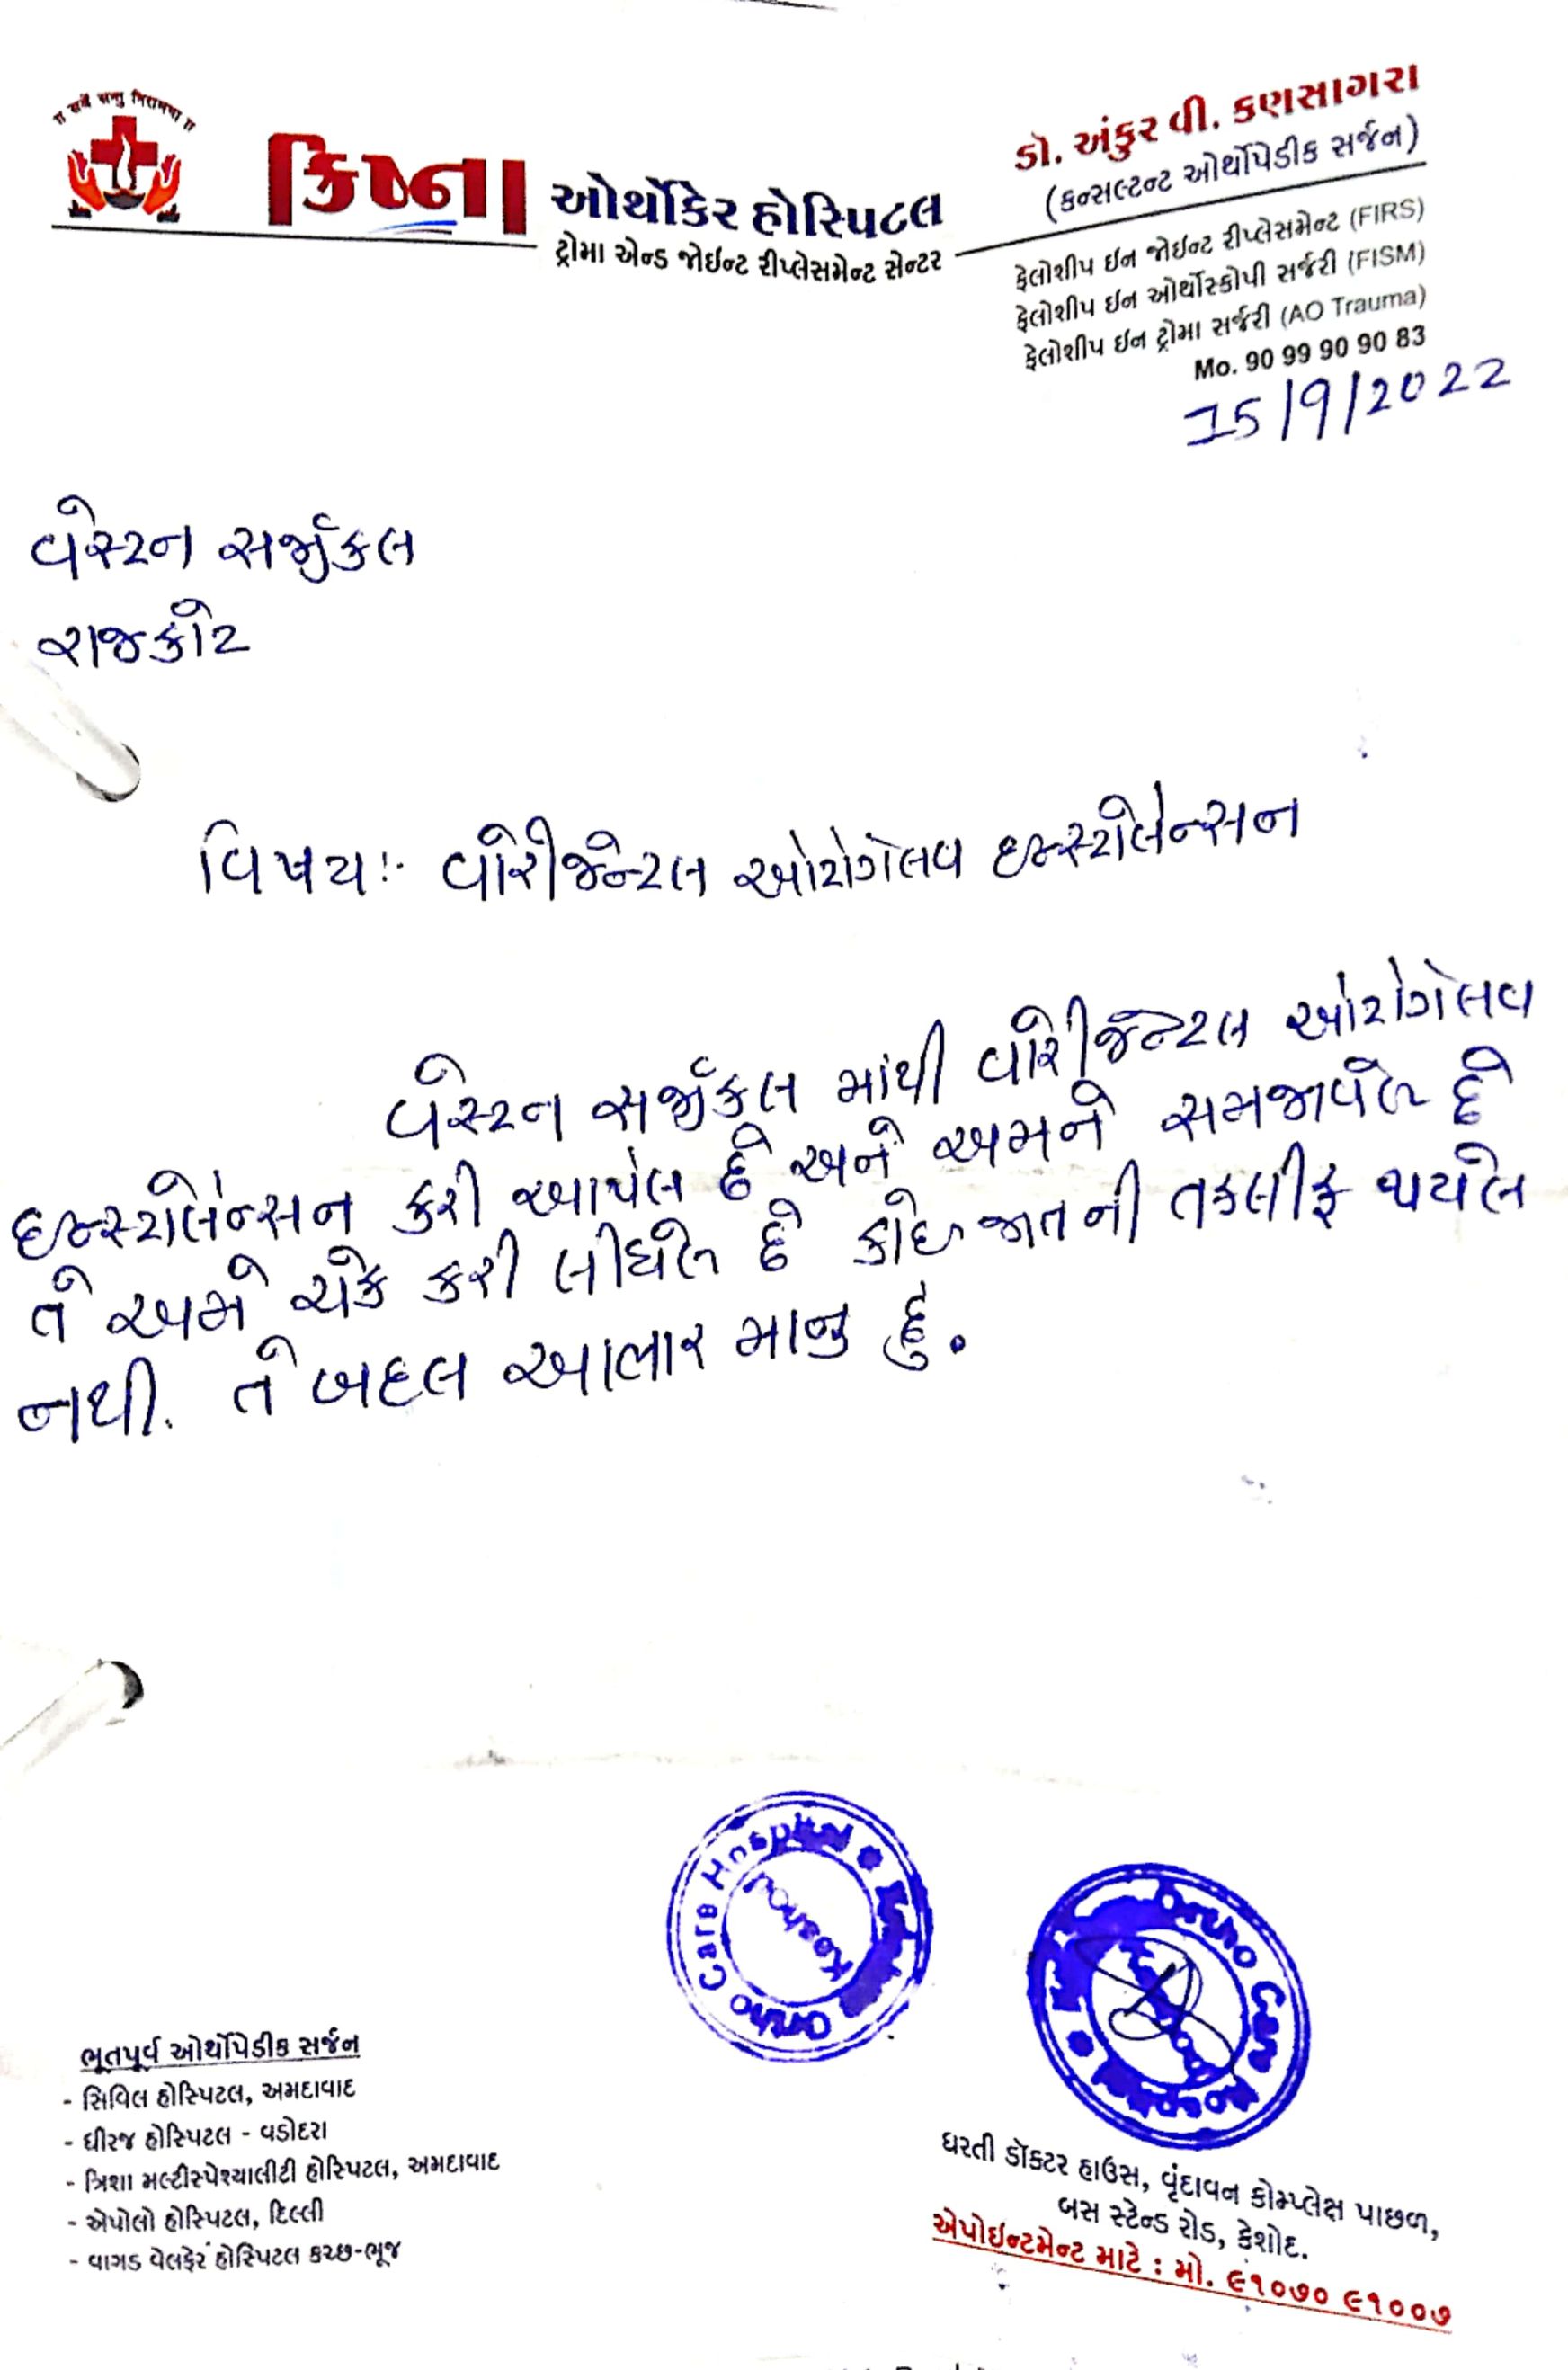 ॥ સર્વે સન્તુ નિરામયા ॥
ક્રિષ્ના ઓર્થોકેર હોસ્પિટલ
ટ્રોમા એન્ડ જોઈન્ટ રીપ્લેસમેન્ટ સેન્ટર
ડૉ. અંકુર વી. કણસાગરા
(કન્સલ્ટન્ટ ઓર્થોપેડીક સર્જન)
ફેલોશીપ ઈન જોઈન્ટ રીપ્લેસમેન્ટ (FIRS)
ફેલોશીપ ઈન ઓર્થોસ્કોપી સર્જરી (FISM)
ફેલોશીપ ઈન ટ્રોમા સર્જરી (AO Trauma)
Mo. 90 99 90 90 83
15/9/2022
વેસ્ટન સર્જીકલ
રાજકોટ
વિષયઃ- વોરીજેન્ટલ ઓટોગેલવ ઇન્સ્ટોલેન્સન
વેસ્ટન સર્જીકલ માંથી વોરીજેન્ટલ ઓટોગેલવ
ઇન્સ્ટોલેન્સન કરી આપેલ છે અને અમને સમજાવેલ છે
તે અમે ચેક કરી લીધેલ છે કોઇ જાતની તકલીફ થયેલ
નથી. તે બદલ આભાર માનુ છું.
Ortho Care Hospital
Keshod
Ortho Care Hospital
ભૂતપૂર્વ ઓર્થોપેડીક સર્જન
- સિવિલ હોસ્પિટલ, અમદાવાદ
- ધીરજ હોસ્પિટલ - વડોદરા
- ત્રિશા મલ્ટીસ્પેશ્યાલીટી હોસ્પિટલ, અમદાવાદ
- એપોલો હોસ્પિટલ, દિલ્લી
- વાગડ વેલફેર હોસ્પિટલ કચ્છ-ભૂજ
ધરતી ડૉક્ટર હાઉસ, વૃંદાવન કોમ્પ્લેક્ષ પાછળ,
બસ સ્ટેન્ડ રોડ, કેશોદ.
એપોઈન્ટમેન્ટ માટે : મો. ૯૧૦૭૦ ૯૧૦૦૭